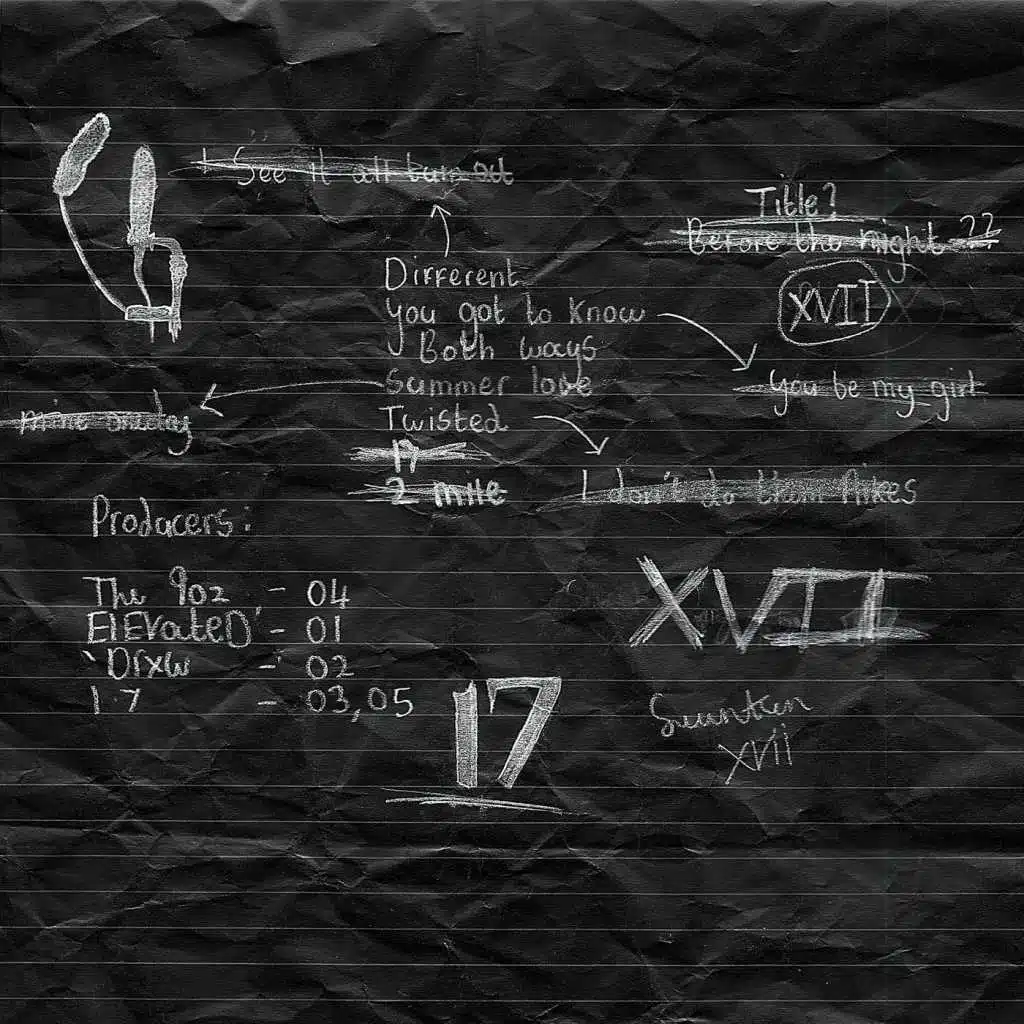 I See it all turn out
Title?
Before the night ??
XVII
Different
You got to know
Both ways
Summer love
Twisted
17
2 mile
You be my girl
mine oneday
I don't do them Nikes
Producers:
The 90z - 04
ElEvateD' - 01
'Drxw - 02
1.7 - 03,05
XVII
17
xvii